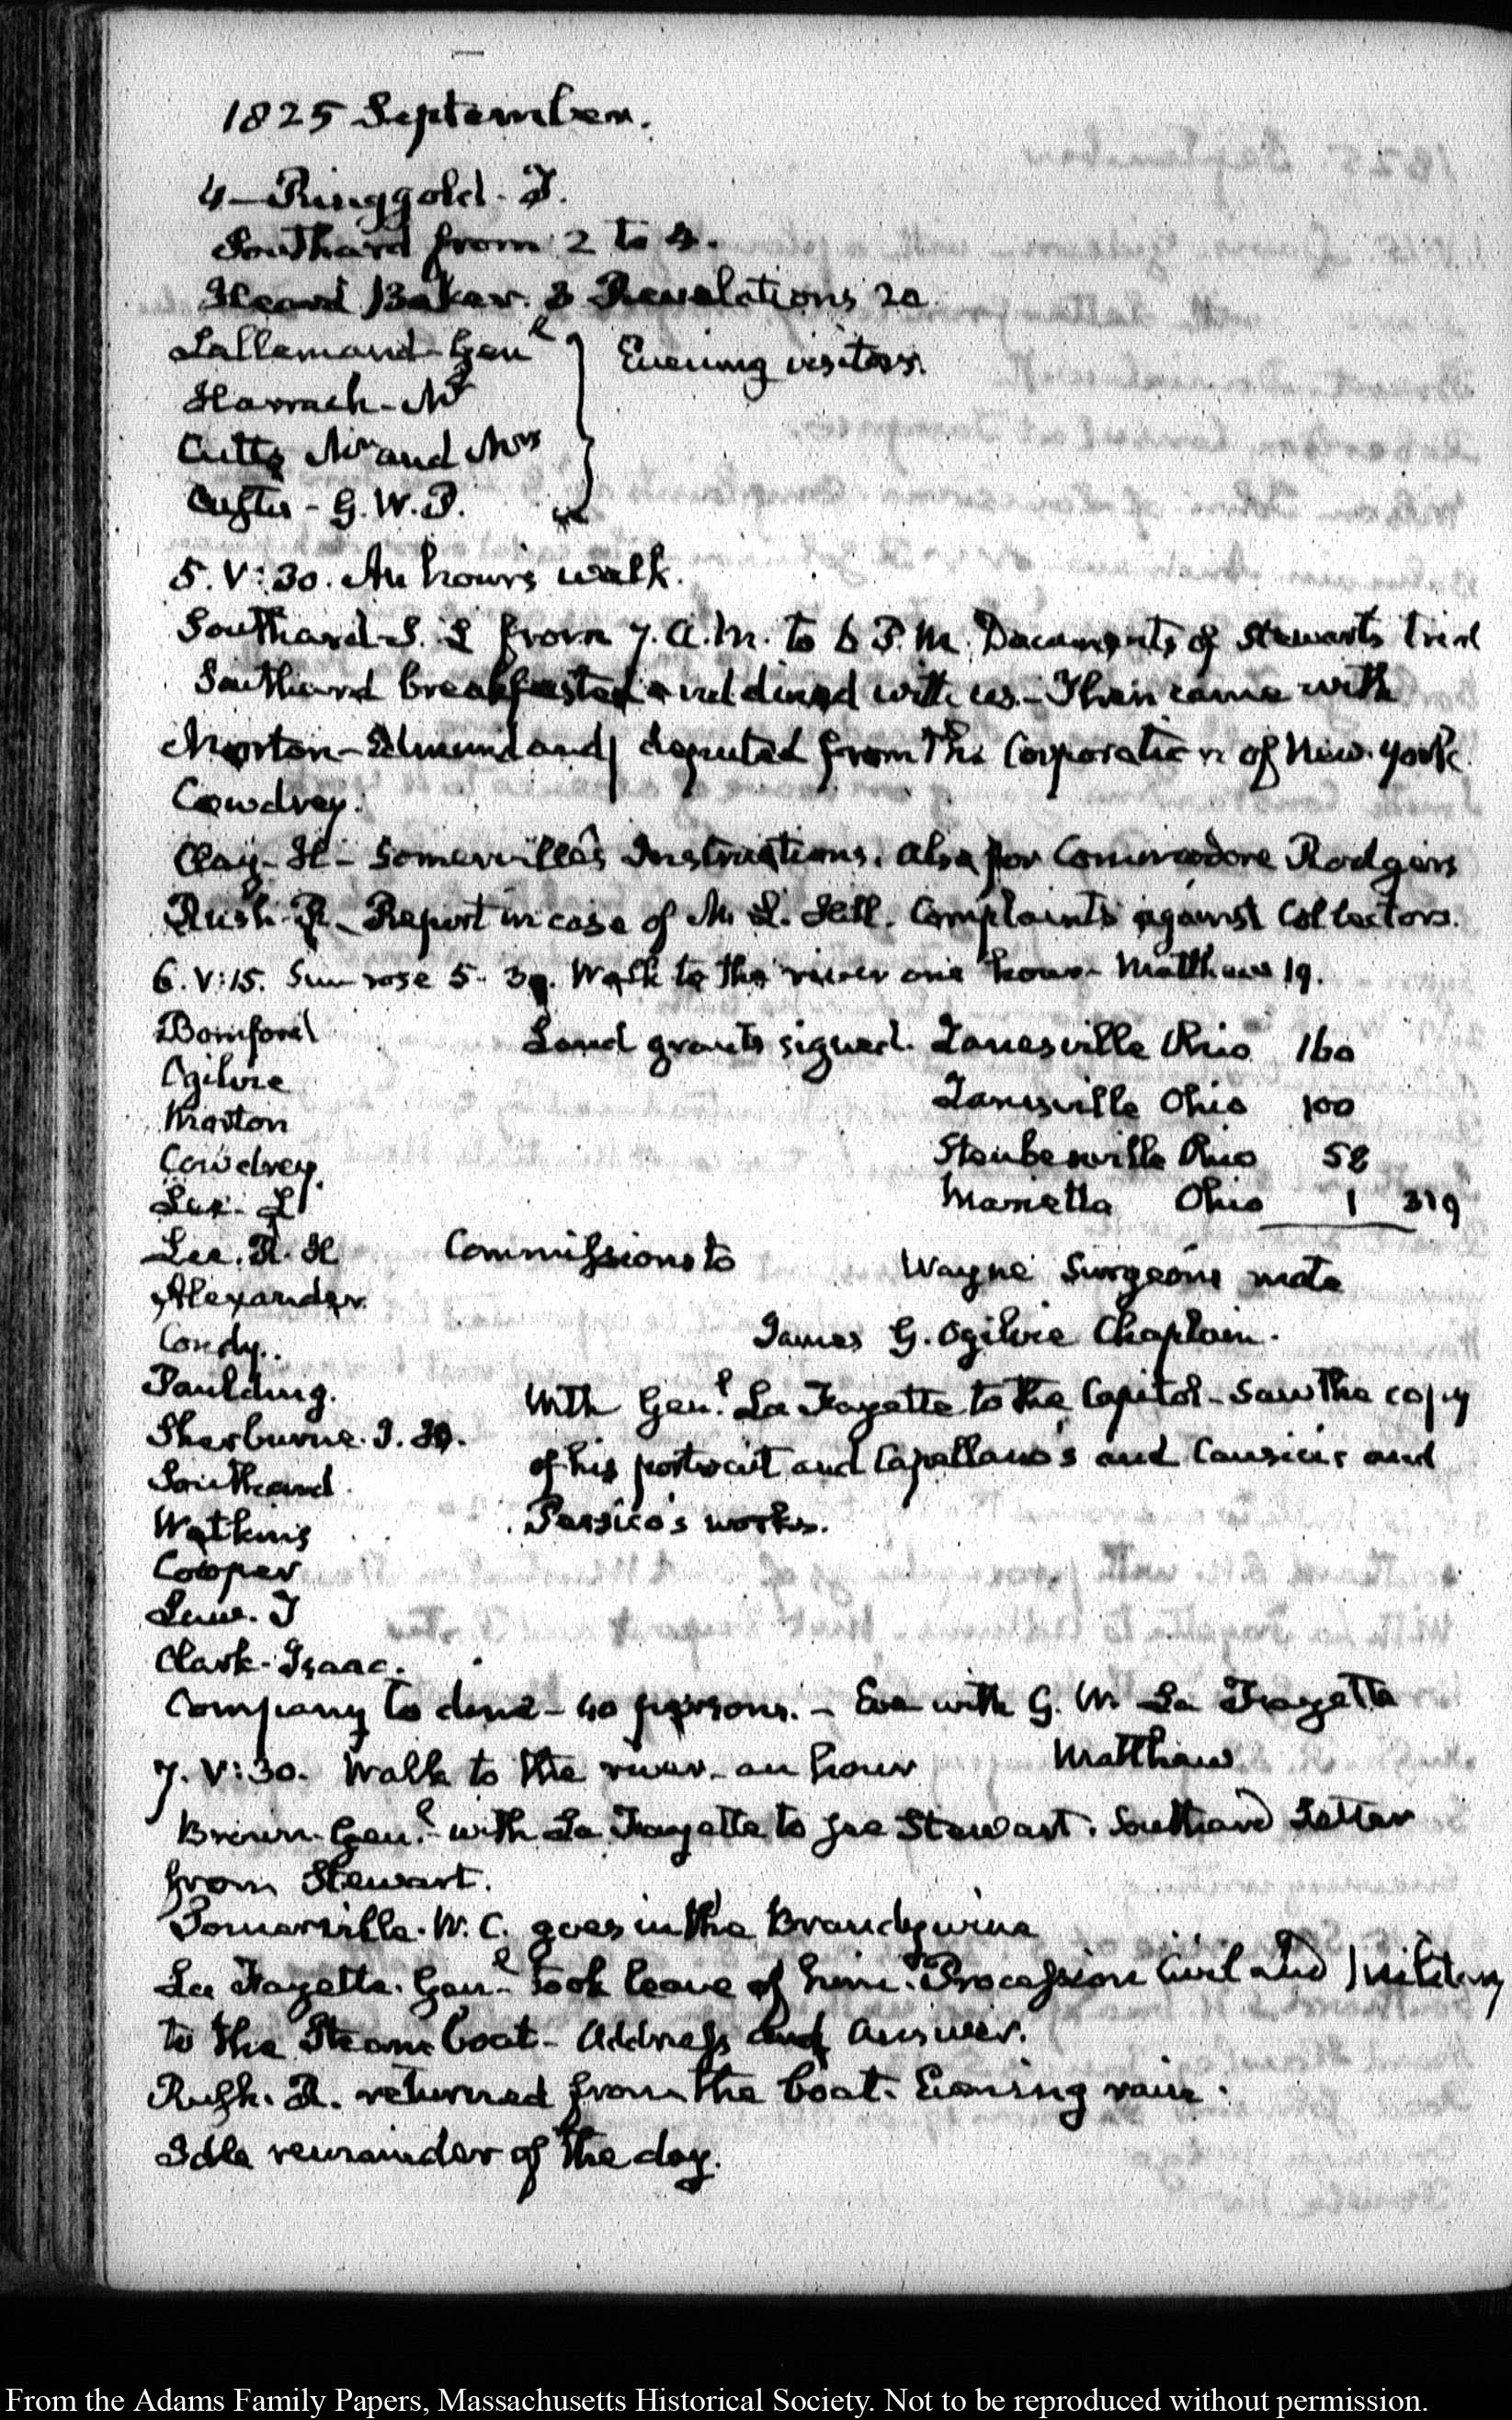 1825 September.
4—Ringgold. T.
Southard from 2 to 4.
Heard Baker. 3 Revelations 20
Lallemand—Genl } Evening visitors.
Harrach—Mr
Cutts Mr and Mrs
Custis—G. W. P.
5. V:30. An hour's walk.
Southard—S. L from 7. A.M. to 6 P.M. Documents of Stewarts trial
Southard breakfasted and dined with us.—Then came with
Morton— and deputed from the Corporation of New-York
Cowdrey.
Clay—H—Somerville's Instructions. also for Commodore Rodgers
Rush—R—Report in case of M. L. Hill. Complaints against Collectors.
6. V:15. Sun rose 5. 39. Walk to the river one hour—Matthew 19.
Bomford Land grants signed. Zanesville Ohio 160
Ogilvie Zanesville Ohio 100
Morton
Cowdrey. Steubenville Ohio 58
Lee. Marietta Ohio 1 319
Lee. R. H Commissions to Wayne Surgeons mate
Alexander
Condy. James G. Ogilvie Chaplain.
Paulding. With Genl. La Fayette to the Capitol—Saw the copy
Sherburne. J. H. of his portrait and Capellano's and Causicis and
Southard Persico's works.
Watkins
Cooper
Law. T
Clark—Isaac.
Company to dine—40 persons.—Eve with G. W. La Fayette
7. V:30. Walk to the river—an hour Matthew
Brown—Genl.—with La Fayette to see Stewart. Southard Letter
from Stewart.
Somerville. W. C. goes in the Brandywine
La Fayette. Genl. took leave of him. Procession Civil and Military
to the Steam boat—Address and answer.
Rush. R. returned from the boat. Evening rain.
Idle remainder of the day.
From the Adams Family Papers, Massachusetts Historical Society. Not to be reproduced without permission.